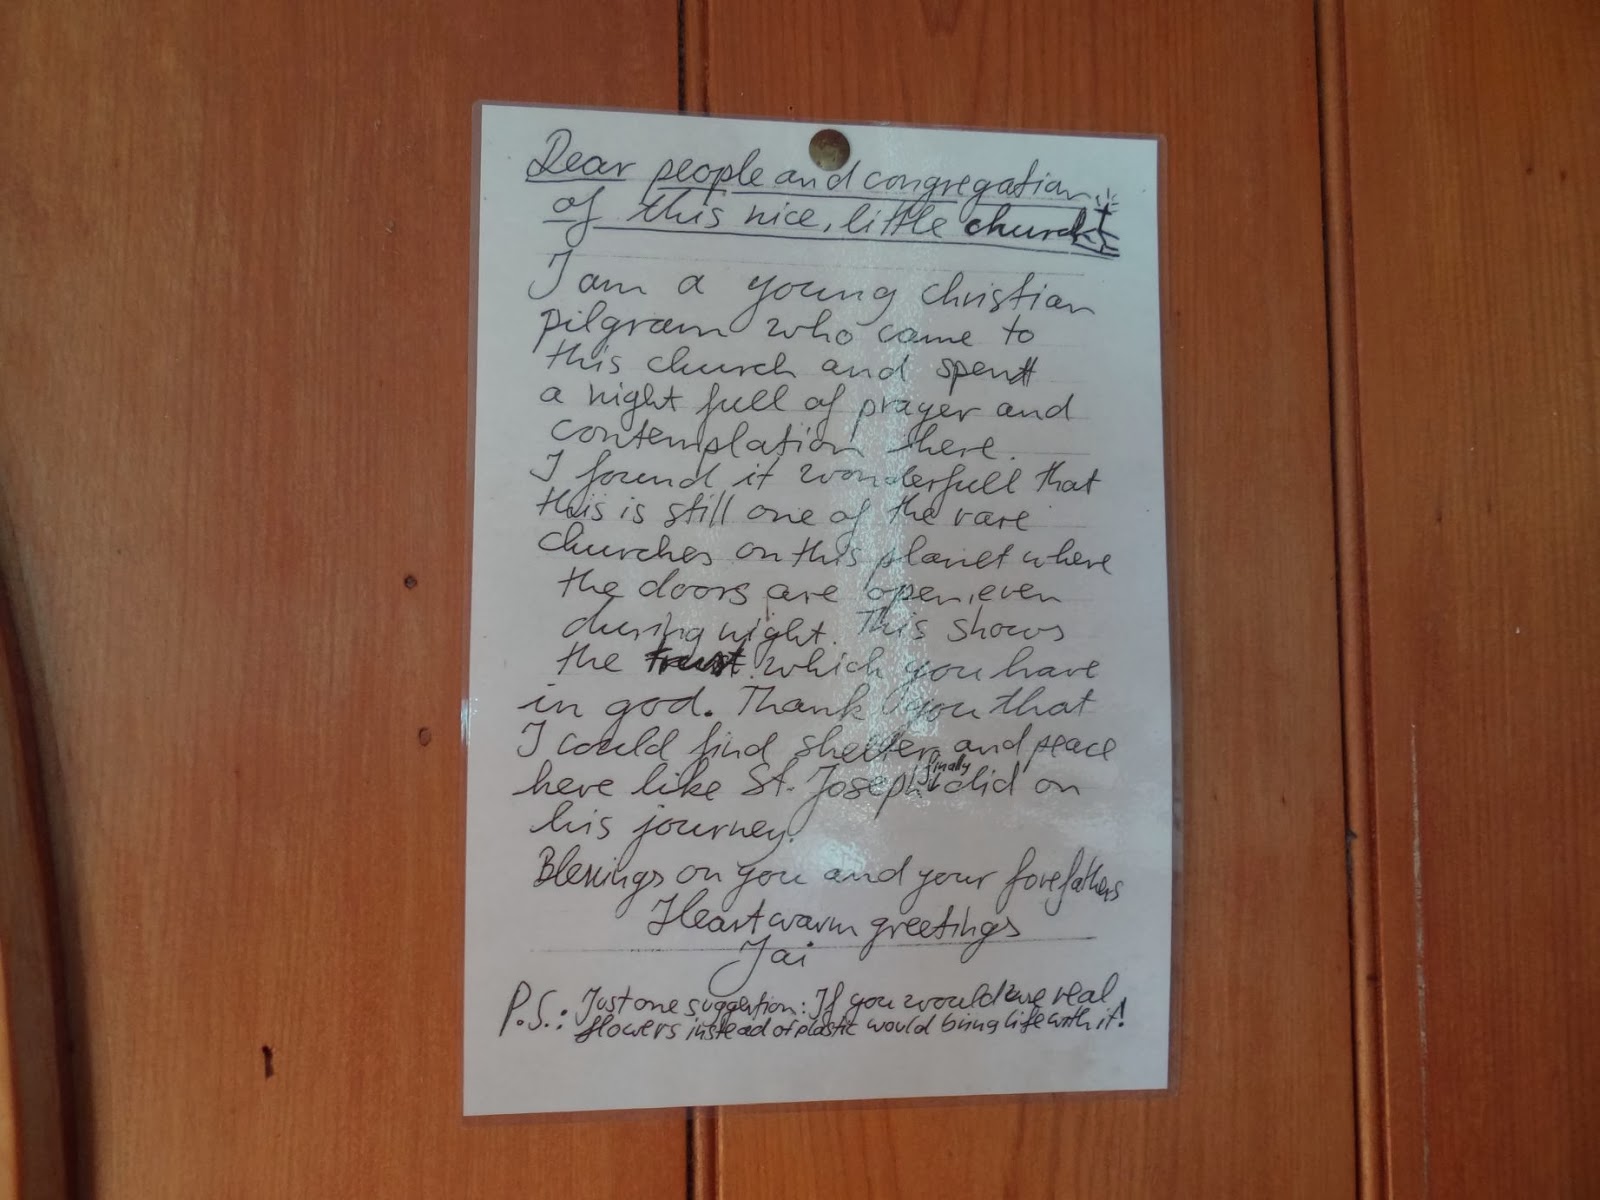 Dear people and congregation
of this nice, little church
I am a young christian
pilgram who came to
this church and spent
a night full of prayer and
contemplation here.
I found it wonderfull that
this is still one of the rare
churches on this planet where
the doors are open, even
during night. This shows
the trust which you have
in god. Thank you that
I could find shelter and peace
here like St. Joseph finally did on
his journey.
Blessings on you and your forefathers
Heartwarm greetings
Jai
P.S.: Just one suggestion: If you would use real
flowers instead of plastic would bring life with it!